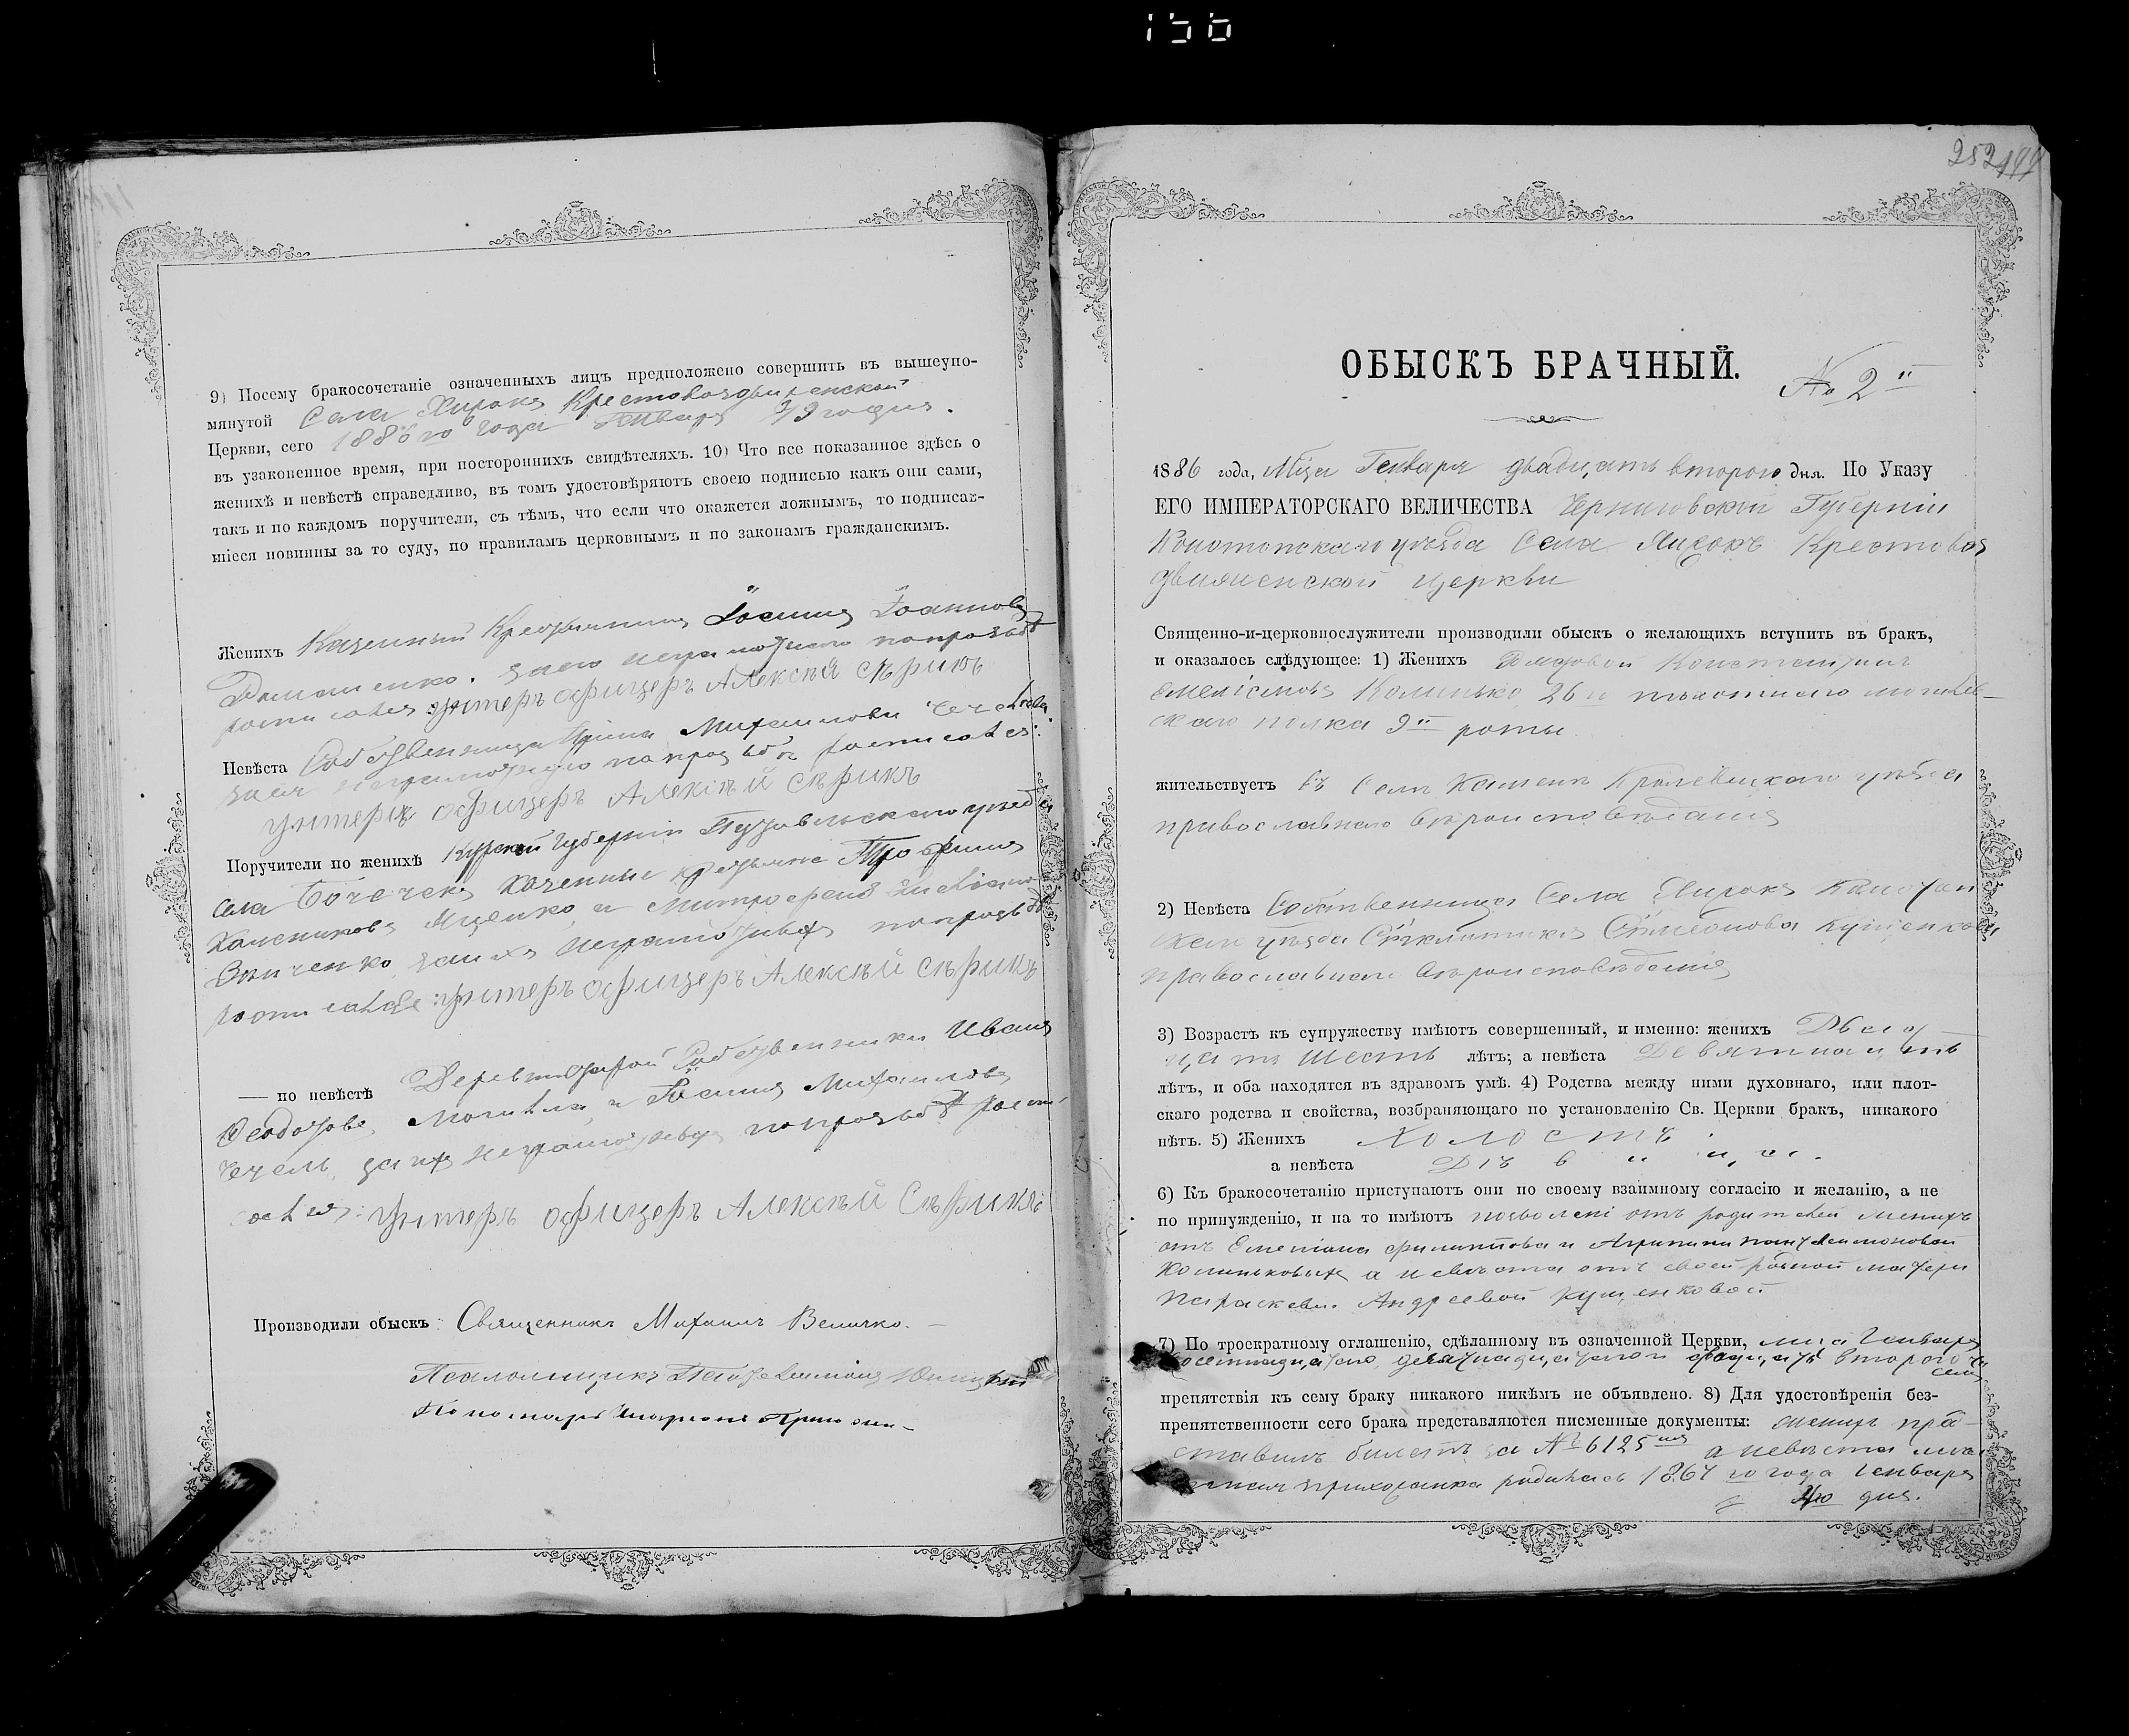 156
9) Посему бракосочетаніе означенныхъ лицъ предположено совершить въ вышеупо-
мянутой Села Хирокъ Крестовоздвиженской
Церкви, сего 1886 го года Генваря 19 го дня.
въ узаконенное время, при постороннихъ свидѣтеляхъ. 10) Что все показанное здѣсь о
женихѣ и невѣстѣ справедливо, въ томъ удостовѣряютъ своею подписью какъ они сами,
такъ и по каждомъ поручители, съ тѣмъ, что если что окажется ложнымъ, то подписав-
шіеся повинны за то суду, по правиламъ церковнымъ и по законамъ гражданскимъ.
Женихъ Казенный Крестьянинъ Іоаннов
за его неграмотного по прозьбѣ
росписався унтеръ офицеръ Алексѣй Сѣрикъ
Невѣста Собственница Михаилова
за ея неграмотную по прозьбѣ росписався:
унтеръ офицеръ Алексѣй Сѣрикъ
Поручители по женихѣ Курской Губерніи Путивльскаго уезда
села Бочечекъ Казенные крестьяне Трофимъ
Яценко и Митрофанъ
за ихъ неграмотныхъ по прозьбѣ
росписався: унтеръ офицеръ Алексѣй Сѣрикъ
— по невѣстѣ Собственники Иванъ
Феодотовъ Могила и Михаиловъ
Чечель, за ихъ неграмотныхъ по прозьбѣ роспи
сався: Унтеръ офицеръ Алексѣй Сѣрикъ
Производили обыскъ: Священникъ Михаилъ Величко.
Псаломщикъ
Пономарь
252
ОБЫСКЪ БРАЧНЫЙ.
№ 2 й
1886 года, Мца Генваря двадцать второго дня. По Указу
ЕГО ИМПЕРАТОРСКАГО ВЕЛИЧЕСТВА Черниговской Губерніи
Конотопскаго уѣзда Села Хирокъ Крестовоз
движенской церкви
Священно-и-церковнослужители производили обыскъ о желающихъ вступить въ бракъ,
и оказалось слѣдующее: 1) Женихъ Рядовой Константинъ
Емеліановъ Калинько 26 го пѣхотнаго могилев-
скаго полка 9 й роты
жительствуетъ въ Селѣ Камени Кролевецкаго уѣзда
православнаго вѣроисповѣданія
2) Невѣста Собственница Села Хирокъ Конотоп
ской уѣзда Симеонова Кущенкова
православнаго вѣроисповѣданія
3) Возрастъ къ супружеству имѣютъ совершенный, и именно: женихъ Двад
цать шесть лѣтъ; а невѣста Девятнадцать
лѣтъ, и оба находятся въ здравомъ умѣ. 4) Родства между ними духовнаго, или плот-
скаго родства и свойства, возбраняющаго по установленію Св. Церкви бракъ, никакого
нѣтъ. 5) Женихъ Холостъ.
а невѣста Дѣвица.
6) Къ бракосочетанію приступаютъ они по своему взаимному согласію и желанію, а не
по принужденію, и на то имѣютъ позволені отъ родителей женихъ
отъ Емеліана Филиппова и Агрипини Пантелеимоновой
Калиньковыхъ а невѣста отъ своей родной матери
Параскеви Андреевой Кущенковой
7) По троекратному оглашенію, сдѣланному въ означенной Церкви, мца Генваря
восемнадцатаго, девятнадцатого и двадцать второго чи
селъ
препятствія къ сему браку никакого никѣмъ не объявлено. 8) Для удостовѣренія без-
препятственности сего брака представляются писменные документы: женихъ пред
ставилъ билетъ за № 6125 мъ а невѣста
прихожанка родилась 1867 го года Генваря
дня.